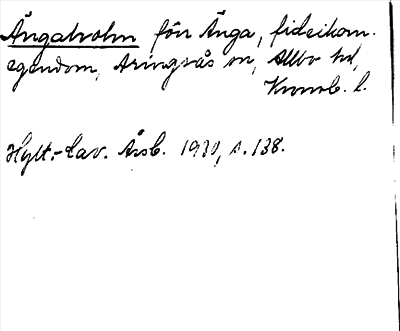 Ängaholm förr Änga, fideikom.
egendom, Aringsås sn, Allbo hd,
Kronob. l.
Hylt.-Cav. Årsb. 1930, s. 138.